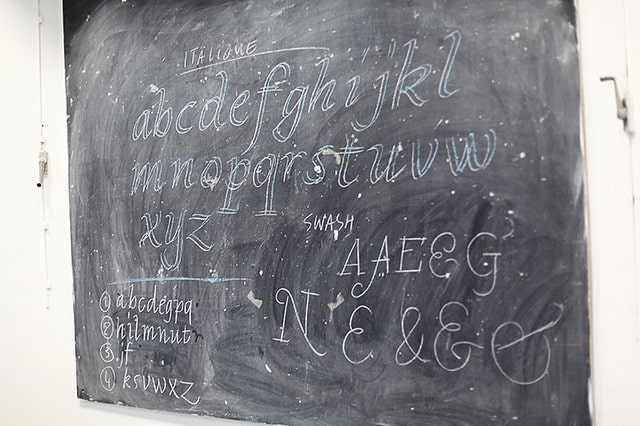 ITALIQUE
abcdefghijkl
mnopqrstuvw
xyz
SWASH
AAEEG
N E & E &
① abcdegpq
② hilmnut
③ jf
④ ksvwxz